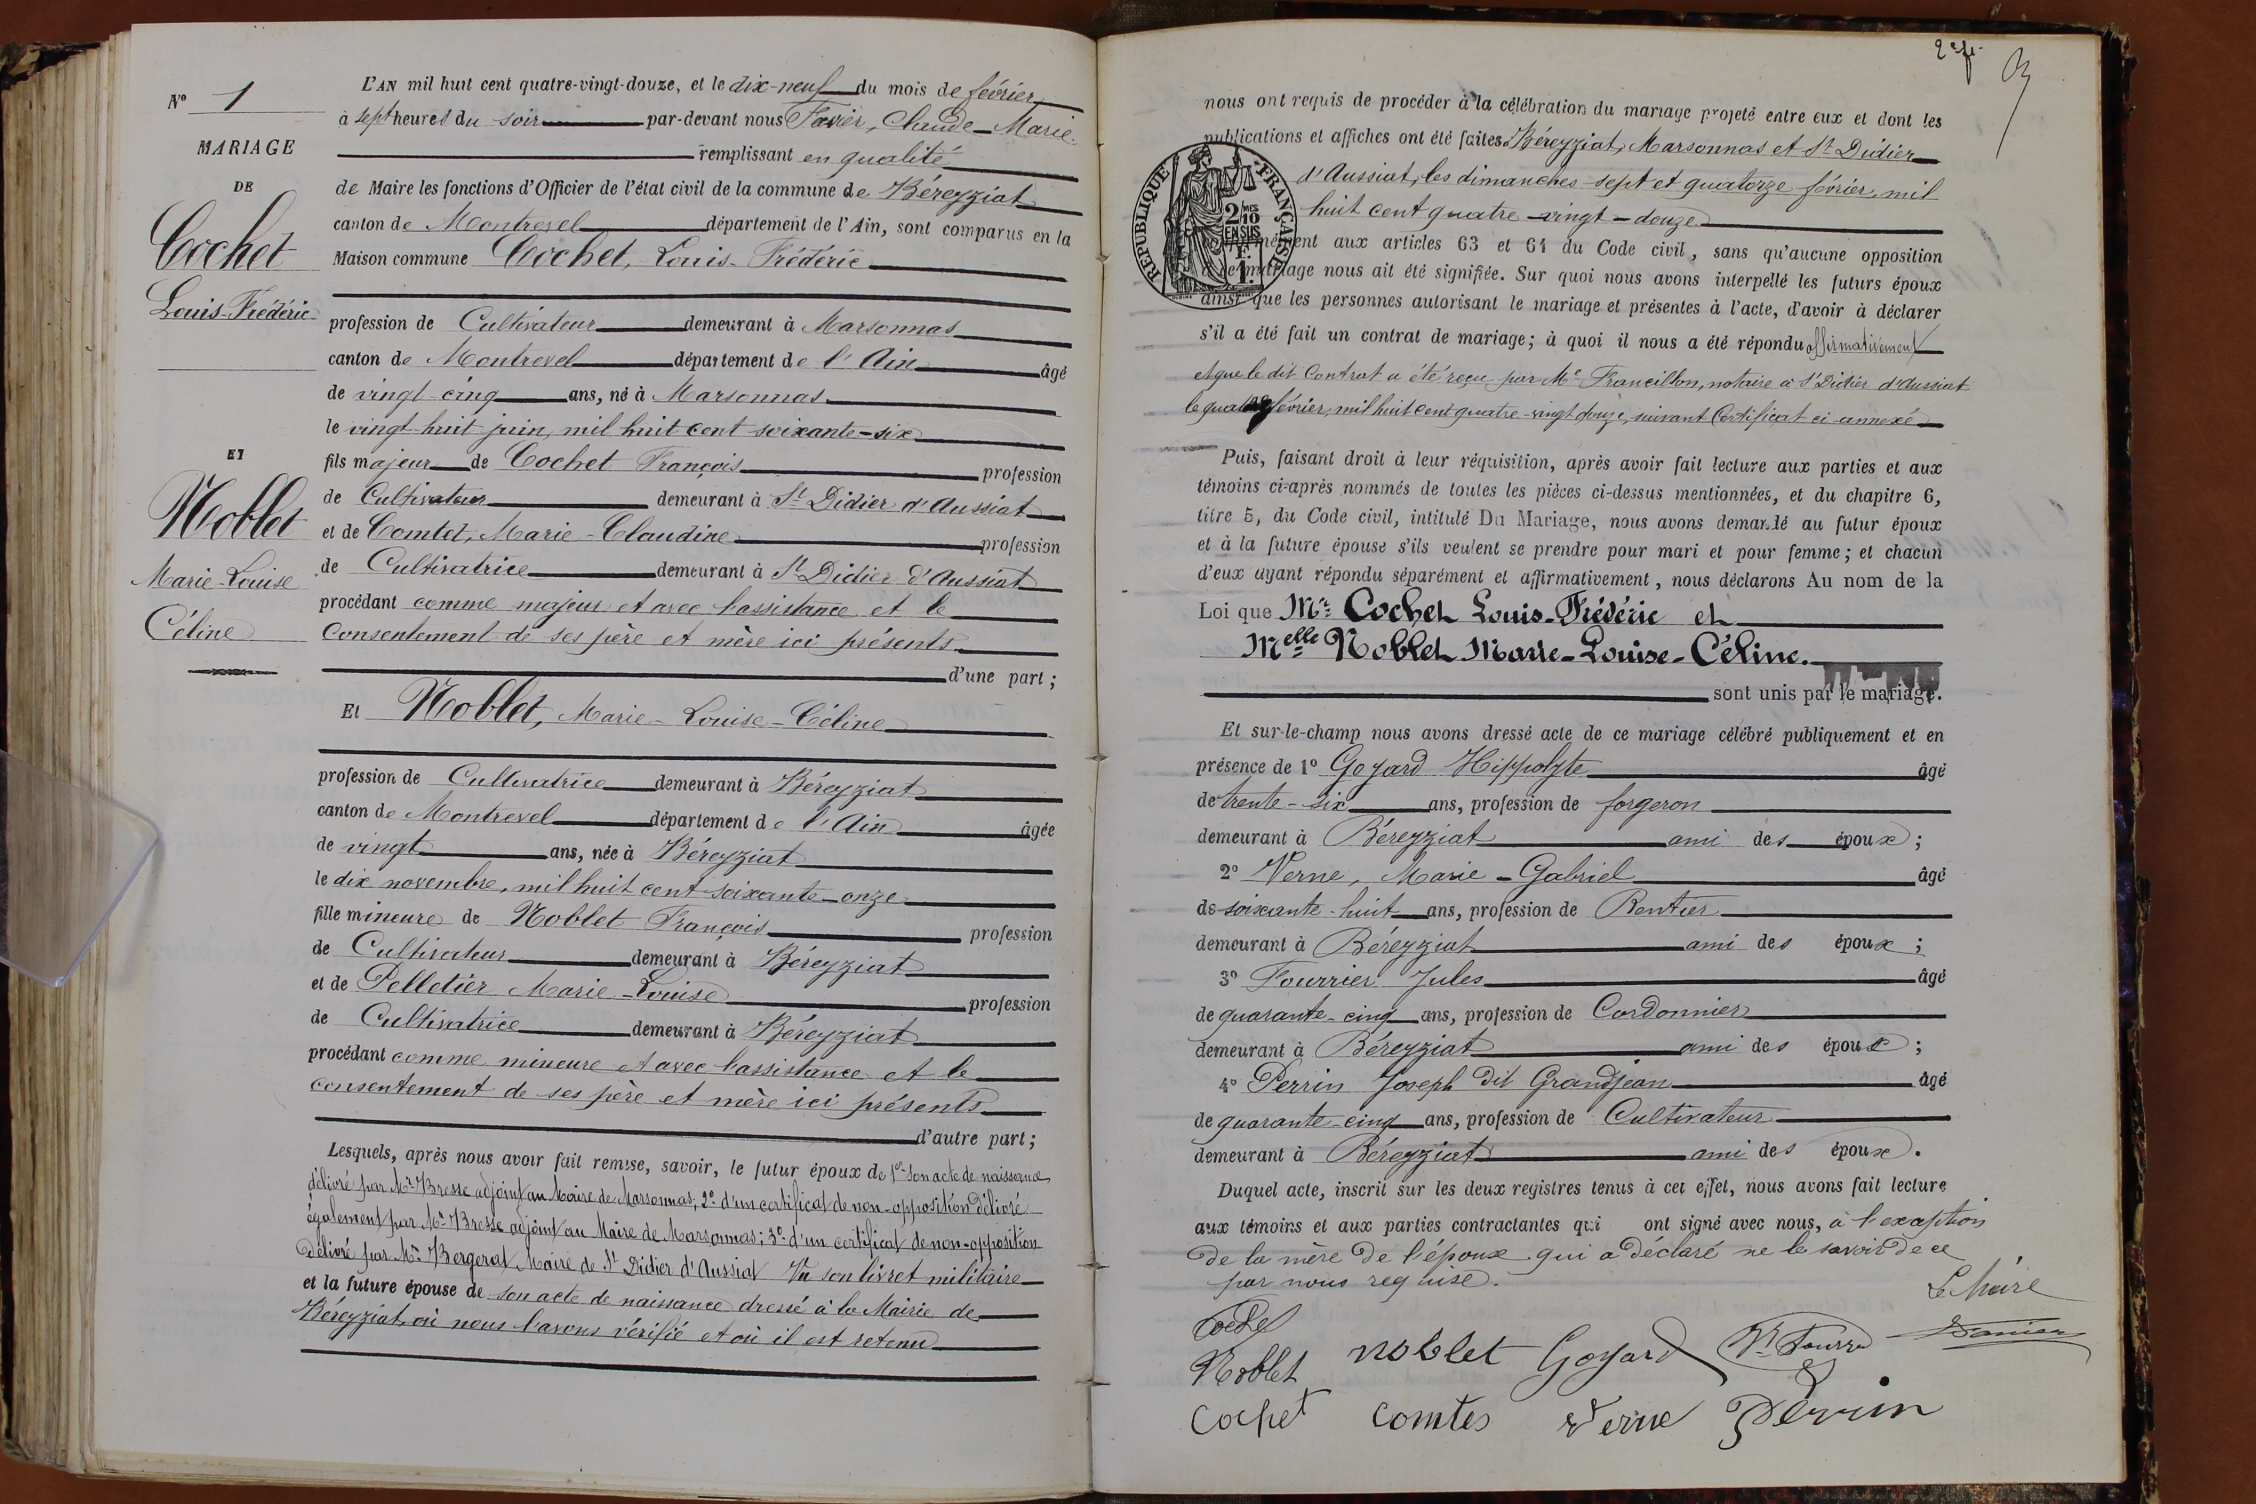 N° 1
MARIAGE
DE
Cochet
Louis-Frédéric
ET
Noblet
Marie-Louise
Céline
L'AN mil huit cent quatre-vingt-douze, et le dix-neuf du mois de février
à sept heures du soir par-devant nous Favier, Claude-Marie
remplissant en qualité
de Maire les fonctions d'Officier de l'état civil de la commune de Béreyziat
canton de Montrevel département de l'Ain, sont comparus en la
Maison commune Cochet, Louis-Frédéric
profession de Cultivateur demeurant à Marsonnas
canton de Montrevel département de l'Ain âgé
de vingt-cinq ans, né à Marsonnas
le vingt-huit juin, mil huit cent soixante-six
fils majeur de Cochet François profession
de Cultivateur demeurant à St Didier d'Aussiat
et de Comtet, Marie-Claudine profession
de Cultivatrice demeurant à St Didier d'Aussiat
procédant comme majeur et avec l'assistance et le
Consentement de ses père et mère ici présents
d'une part ;
Et Noblet, Marie-Louise-Céline
profession de Cultivatrice demeurant à Béreyziat
canton de Montrevel département de l'Ain âgée
de vingt ans, née à Béreyziat
le dix novembre, mil huit cent soixante-onze
fille mineure de Noblet François profession
de Cultivateur demeurant à Béreyziat
et de Pelletier Marie-Louise profession
de Cultivatrice demeurant à Béreyziat
procédant comme mineure et avec l'assistance et le
consentement de ses père et mère ici présents
d'autre part ;
Lesquels, après nous avoir fait remise, savoir, le futur époux de 1° son acte de naissance
délivré par Mr Bresse adjoint au Maire de Marsonnas; 2° d'un certificat de non-opposition délivré
également par Mr Bresse adjoint au Maire de Marsonnas; 3° d'un certificat de non-opposition
délivré par Mr Bergerat, Maire de St Didier d'Aussiat Vu son livret militaire
et la future épouse de son acte de naissance dressé à la Mairie de
Béreyziat, où nous l'avons vérifié et où il est retenu
nous ont requis de procéder à la célébration du mariage projeté entre eux et dont les
publications et affiches ont été faites à Béreyziat, Marsonnas et St Didier
d'Aussiat, les dimanches sept et quatorze février, mil
huit cent quatre-vingt-douze
RÉPUBLIQUE FRANÇAISE
2/10 MES
EN SUS
1 F.
aux articles 63 et 64 du Code civil, sans qu'aucune opposition
mariage nous ait été signifiée. Sur quoi nous avons interpellé les futurs époux
ainsi que les personnes autorisant le mariage et présentes à l'acte, d'avoir à déclarer
s'il a été fait un contrat de mariage; à quoi il nous a été répondu affirmativement
et que le dit Contrat a été reçu par Me Francillon, notaire à St Didier d'Aussiat
le février, mil huit cent quatre-vingt douze, suivant Certificat ci-annexé
Puis, faisant droit à leur réquisition, après avoir fait lecture aux parties et aux
témoins ci-après nommés de toutes les pièces ci-dessus mentionnées, et du chapitre 6,
titre 5, du Code civil, intitulé Du Mariage, nous avons demandé au futur époux
et à la future épouse s'ils veulent se prendre pour mari et pour femme; et chacun
d'eux ayant répondu séparément et affirmativement, nous déclarons Au nom de la
Loi que Mr Cochet Louis-Frédéric et
Melle Noblet Marie-Louise-Céline.
sont unis par le mariage.
Et sur-le-champ nous avons dressé acte de ce mariage célébré publiquement et en
présence de 1° Goyard Hippolyte âgé
de trente-six ans, profession de forgeron
demeurant à Béreyziat ami des époux ;
2° Verne, Marie-Gabriel âgé
de soixante-huit ans, profession de Rentier
demeurant à Béreyziat ami des époux ;
3° Fourrier Jules âgé
de quarante-cinq ans, profession de Cordonnier
demeurant à Béreyziat ami des époux ;
4° Perrin Joseph dit Grandjean âgé
de quarante-cinq ans, profession de Cultivateur
demeurant à Béreyziat ami des époux.
Duquel acte, inscrit sur les deux registres tenus à cet effet, nous avons fait lecture
aux témoins et aux parties contractantes qui ont signé avec nous, à l'exception
de la mère de l'époux qui a déclaré ne le savoir de ce
par nous requise.
Le Maire
Noblet noblet Goyard
Cochet comtes Verne Perrin